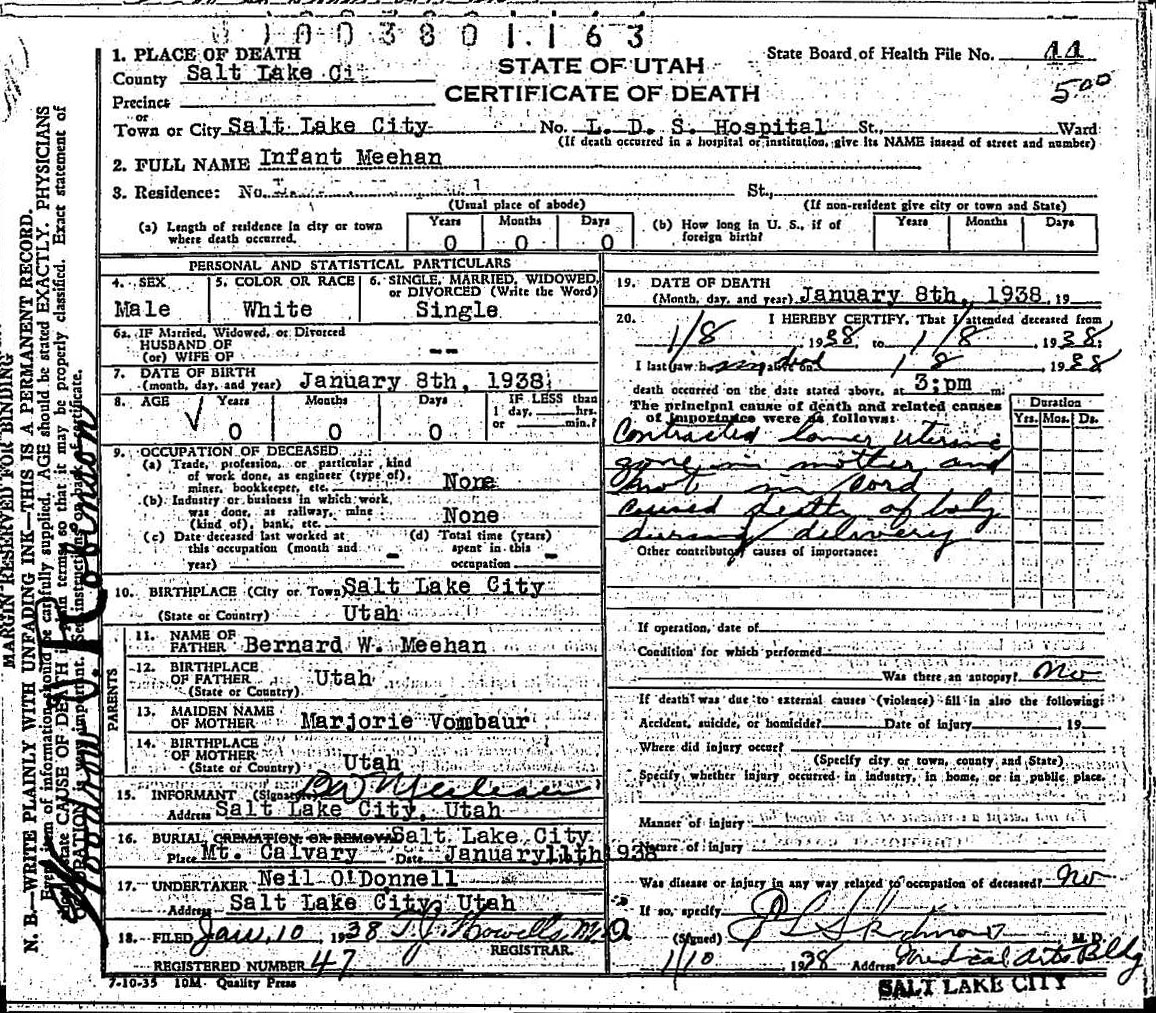 0100380 1.163
1. PLACE OF DEATH
STATE OF UTAH
State Board of Health File No. 44
County Salt Lake Ci
CERTIFICATE OF DEATH
5.00
Precinct
or
Town or City Salt Lake City No. L. D. S. Hospital St., Ward
(If death occurred in a hospital or institution, give its NAME insead of street and number)
2. FULL NAME Infant Meehan
3. Residence: No. St.,
(Usual place of abode) (If non-resident give city or town and State)
(a) Length of residence in city or town where death occurred.
Years Months Days
0 0 0
(b) How long in U. S., if of foreign birth?
Years Months Days
PERSONAL AND STATISTICAL PARTICULARS
4. SEX 5. COLOR OR RACE 6. SINGLE, MARRIED, WIDOWED, or DIVORCED (Write the Word)
Male White Single
6a. IF Married, Widowed, or Divorced
HUSBAND OF
(or) WIFE OF --
7. DATE OF BIRTH
(month, day, and year) January 8th, 1938
8. AGE Years Months Days IF LESS than
1 day, hrs.
or min.?
0 0 0
9. OCCUPATION OF DECEASED
(a) Trade, profession, or particular kind
of work done, as engineer (type of),
miner, bookkeeper, etc. None
(b) Industry or business in which work
was done, as railway, mine
(kind of), bank, etc. None
(c) Date deceased last worked at
this occupation (month and
year) -
(d) Total time (years)
spent in this
occupation -
10. BIRTHPLACE (City or Town) Salt Lake City
(State or Country) Utah
PARENTS
11. NAME OF
FATHER Bernard W. Meehan
12. BIRTHPLACE
OF FATHER Utah
(State or Country)
13. MAIDEN NAME
OF MOTHER Marjorie Vombaur
14. BIRTHPLACE
OF MOTHER
(State or Country) Utah
15. INFORMANT (Signature) BW Meehan
Address Salt Lake City, Utah
16. BURIAL CREMATION OR REMOVAL Salt Lake City
Place Mt. Calvary Date January 11th 1938
17. UNDERTAKER Neil O'Donnell
Address Salt Lake City, Utah
18. FILED Jan. 10, 1938 T.J. Howells M.D.
REGISTRAR.
REGISTERED NUMBER 47
7-10-35 10M Quality Press
19. DATE OF DEATH
(Month, day, and year) January 8th, 1938, 19
20. I HEREBY CERTIFY, That I attended deceased from
1/8 1938, to 1/8, 1938;
I last saw h alive on 1 8, 1938
death occurred on the date stated above, at 3:pm m.
The principal cause of death and related causes
of importance were as follows:
Duration
Yrs. Mos. Ds.
Contracted lower uterine
zone in mother and
knot in cord
caused death of baby
during delivery
Other contributory causes of importance:
If operation, date of
Condition for which performed
Was there an autopsy? No
If death was due to external causes (violence) fill in also the following:
Accident, suicide, or homicide? Date of injury 19
Where did injury occur?
(Specify city or town, county and State)
Specify whether injury occurred in industry, in home, or in public place.
Manner of injury
Nature of injury
Was disease or injury in any way related to occupation of deceased? No
If so, specify
(Signed) M.D.
1/10 1938 Address Medical Arts Bldg
SALT LAKE CITY
MARGIN RESERVED FOR BINDING
N. B.—WRITE PLAINLY WITH UNFADING INK—THIS IS A PERMANENT RECORD.
Every item of information should be carefully supplied. AGE should be stated EXACTLY. PHYSICIANS
should state CAUSE OF DEATH in plain terms so that it may be properly classified. Exact statement of
OCCUPATION is very important. See instructions on back of certificate.
Robinson